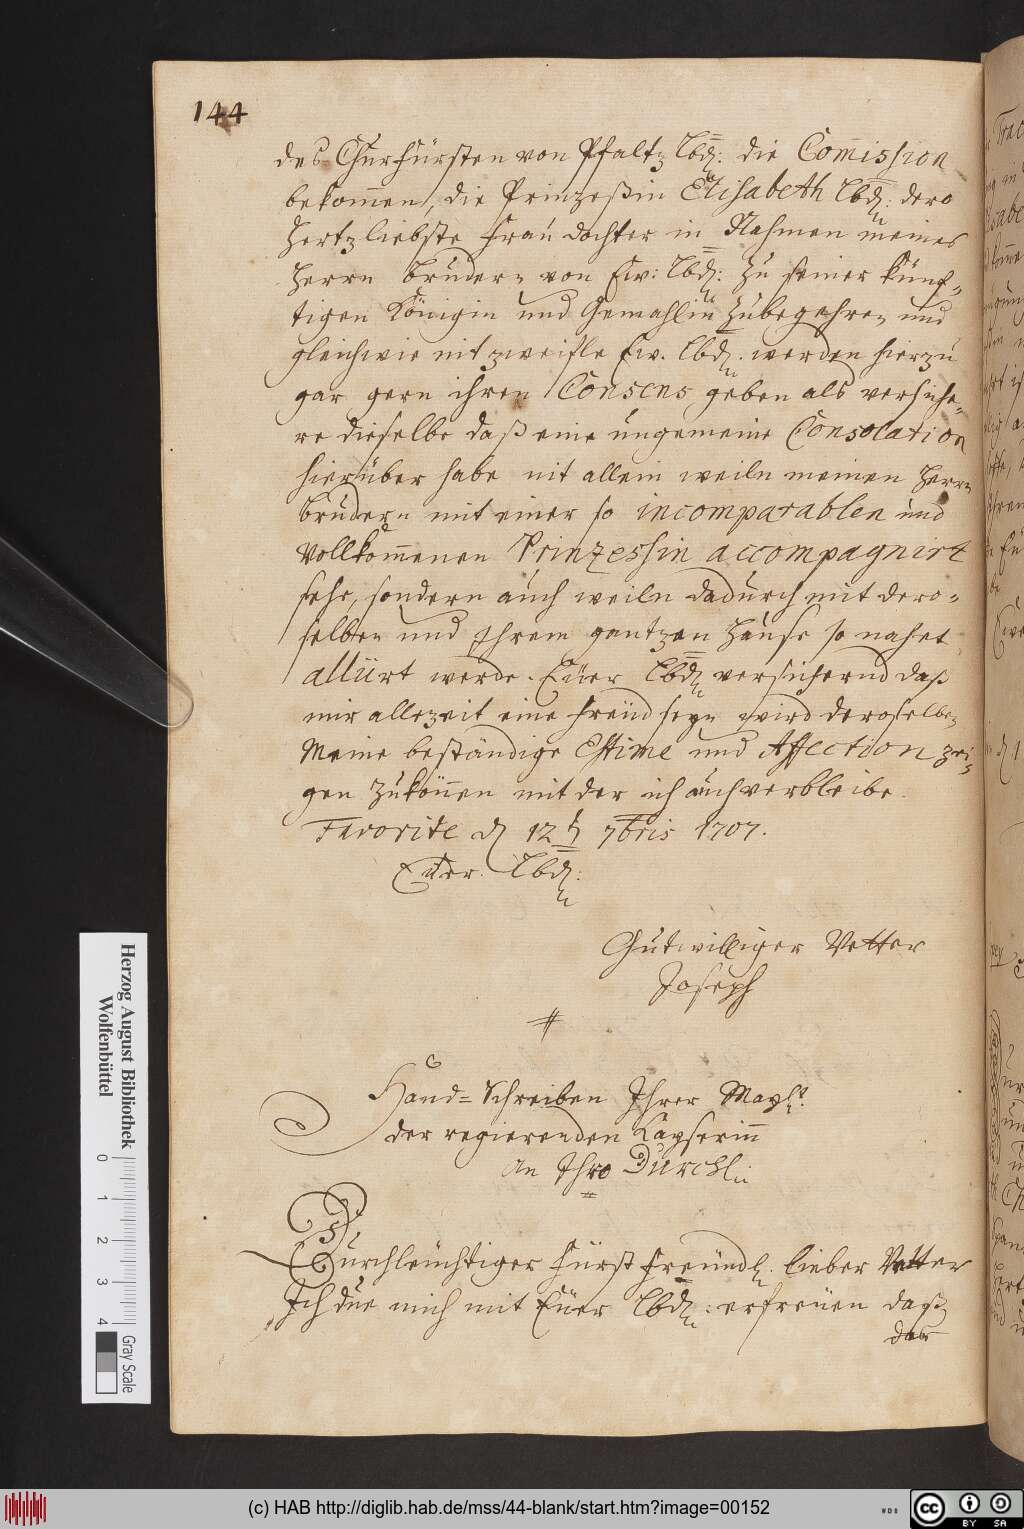 144
des Churfürsten von Pfaltz Lbd: die Com̅ission
bekom̅en, die Prinzeßin Elisabeth Lbd: dero
Hertzliebste Frau dochter in Nahmen meines
Herrn Brudern von Ew: Lbd: zu seiner künf-
tigen Königin und Gemahlin zubegehren und
gleichwie nit zweifle Ew. Lbd. werden hierzu
gar gern ihren Consens geben als versiche-
re dieselbe daß eine ungemeine Consolation
hierüber habe nit allein weiln meinen Herrn
Brudern mit einer so incomparablen und
vollkom̅enen Prinzessin accompagnirt
sehe, sondern auch weiln dadurch mit dero-
selben und Ihrem gantzen Hause so nahet
alliirt werde. Euer Lbd versichernd daß
mir allezeit eine freud seyn wird deroselben
Meine beständige Estime und Affection zei-
gen zukönnen mit der ich auch verbleibe.
Favorite d 12 t 7bris 1707.
Euer. Lbd:
Gutwilliger Vetter
Joseph
Hand-Schreiben Ihrer Mayst.
der regierenden Kayserin̅
an Ihro Durchl:
Durchleuchtiger Fürst Freundl. lieber Vetter
Ich due mich mit Euer Lbd: erfreuen daß
das
Herzog August Bibliothek
Wolfenbüttel
0 1 2 3 4
Gray Scale
(c) HAB http://diglib.hab.de/mss/44-blank/start.htm?image=00152
cc BY SA